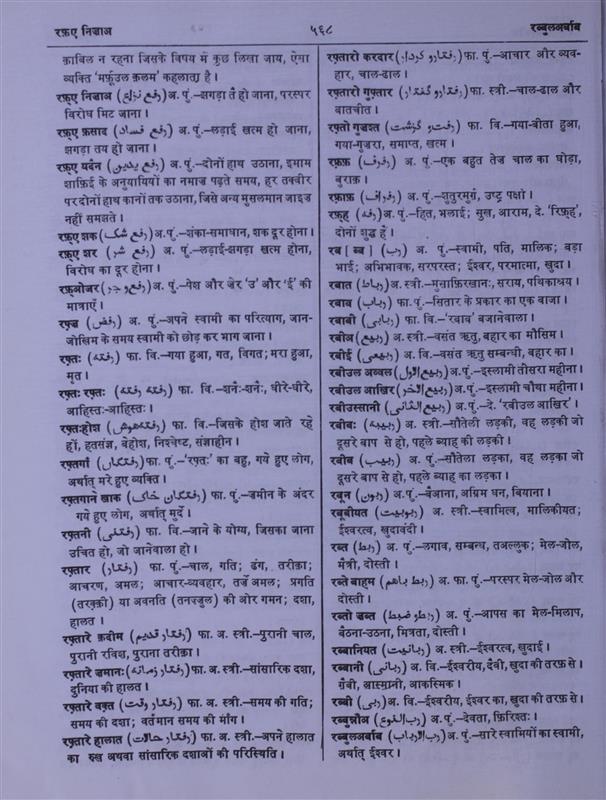 रफ़ए निज़ाअ ५६८ रब्बुलअर्बाब
क़ाबिल न रहना जिसके विषय में कुछ लिखा जाय, ऐसा
व्यक्ति 'मर्फ़ूउल क़लम' कहलाता है।
रफ़्ए निज़ाअ (رفع نزاع) अ. पुं.–झगड़ा तै हो जाना, परस्पर
विरोध मिट जाना।
रफ़्ए फ़साद (رفع فساد) अ. पुं.–लड़ाई खत्म हो जाना,
झगड़ा तय हो जाना।
रफ़्ए यदैन (رفع يدين) अ. पुं.–दोनों हाथ उठाना, इमाम
शाफ़िई के अनुयायियों का नमाज पढ़ते समय, हर तक्बीर
पर दोनों हाथ कानों तक उठाना, जिसे अन्य मुसलमान जाइज़
नहीं समझते।
रफ़्ए शक (رفع شک) अ. पुं.–शंका-समाधान, शक दूर होना।
रफ़्ए शर (رفع شر) अ. पुं.–लड़ाई-झगड़ा खत्म होना,
विरोध का दूर होना।
रफ़्ओजर (رفع و جر) अ. पुं.–पेश और ज़ेर 'उ' और 'ई' की
मात्राएँ।
रफ़्ज़ (رفض) अ. पुं.–अपने स्वामी का परित्याग, जान-
जोखिम के समय स्वामी को छोड़ कर भाग जाना।
रफ़्तः (رفته) फा. वि.–गया हुआ, गत, विगत; मरा हुआ,
मृत।
रफ़्तः रफ़्तः (رفته رفته) फा. वि.–शनैः-शनैः, धीरे-धीरे,
आहिस्तः-आहिस्तः।
रफ़्तःहोश (رفته هوش) फा. वि.–जिसके होश जाते रहे
हों, हतसंज्ञ, बेहोश, निश्चेष्ट, संज्ञाहीन।
रफ़्तगाँ (رفتگاں) फा. पुं.–'रफ़्तः' का बहु, गये हुए लोग,
अर्थात् मरे हुए व्यक्ति।
रफ़्तगाने खाक (رفتگان خاک) फा. पुं.–जमीन के अंदर
गये हुए लोग, अर्थात् मुर्दे।
रफ़्तनी (رفتنی) फा. वि.–जाने के योग्य, जिसका जाना
उचित हो, जो जानेवाला हो।
रफ़्तार (رفتار) फा. पुं.–चाल, गति; ढंग, तरीक़ा;
आचरण, अमल; आचार-व्यवहार, तर्ज़े अमल; प्रगति
(तरक़्क़ी) या अवनति (तनज़्ज़ुल) की ओर गमन; दशा,
हालत।
रफ़्तारे क़दीम (رفتار قديم) फा. अ. स्त्री.–पुरानी चाल,
पुरानी रविश, पुराना तरीक़ा।
रफ़्तारे ज़मानः (رفتار زمانه) फा. अ. स्त्री.–सांसारिक दशा,
दुनिया की हालत।
रफ़्तारे वक़्त (رفتار وقت) फा. अ. स्त्री.–समय की गति;
समय की दशा; वर्तमान समय की माँग।
रफ़्तारे हालात (رفتار حالات) फा. अ. स्त्री.–अपने हालात
का रुख अथवा सांसारिक दशाओं की परिस्थिति।
रफ़्तारो करदार (رفتار و کردار) फा. पुं.–आचार और व्यव-
हार, चाल-ढाल।
रफ़्तारो गुफ़्तार (رفتار و گفتار) फा. स्त्री.–चाल-ढाल और
बातचीत।
रफ़्तो गुज़श्त (رفت و گزشت) फा. वि.–गया-बीता हुआ,
गया-गुज़रा, समाप्त, खत्म।
रफ़्रफ़ (رفرف) अ. पुं.–एक बहुत तेज चाल का घोड़ा,
बुराक़।
रफ़्राफ़ (رفراف) अ. पुं.–शुतुरमुर्ग़, उष्ट्र पक्षी।
रफ़्ह (رفه) अ. पुं.–हित, भलाई; सुख, आराम, दे. 'रिफ़्ह',
दोनों शुद्ध हैं।
रब [ब्ब] (رب) अ. पुं.–स्वामी, पति, मालिक; बड़ा
भाई; अभिभावक, सरपरस्त; ईश्वर, परमात्मा, खुदा।
रबात (رباط) अ. पुं.–मुसाफ़िरखानः, सराय, पथिकाश्रय।
रबाब (رباب) फा. पुं.–सितार के प्रकार का एक बाजा।
रबाबी (ربابی) फा. वि.–'रबाब' बजानेवाला।
रबीअ (ربيع) अ. स्त्री.–वसंत ऋतु, बहार का मौसिम।
रबीई (ربيعی) अ. वि.–वसंत ऋतु सम्बन्धी, बहार का।
रबीउल अव्वल (ربيع الاول) अ. पुं.–इस्लामी तीसरा महीना।
रबीउल आखिर (ربيع الآخر) अ. पुं.–इस्लामी चौथा महीना।
रबीउस्सानी (ربيع الثانی) अ. पुं.–दे. 'रबीउल आखिर'।
रबीबः (ربيبه) अ. स्त्री.–सौतेली लड़की, वह लड़की जो
दूसरे बाप से हो, पहले ब्याह की लड़की।
रबीब (ربيب) अ. पुं.–सौतेला लड़का, वह लड़का जो
दूसरे बाप से हो, पहले ब्याह का लड़का।
रबून (ربون) अ. पुं.–बैआना, अग्रिम धन, बियाना।
रबूबीयत (ربوبيت) अ. स्त्री.–स्वामित्व, मालिकीयत;
ईश्वरत्व, खुदावंदी।
रब्त (ربط) अ. पुं.–लगाव, सम्बन्ध, तअल्लुक़; मेल-जोल,
मैत्री, दोस्ती।
रब्ते बाहम (ربط باهم) अ. फा. पुं.–परस्पर मेल-जोल और
दोस्ती।
रब्तो ज़ब्त (ربط و ضبط) अ. पुं.–आपस का मेल-मिलाप,
बैठना-उठना, मित्रता, दोस्ती।
रब्बानियत (ربانيت) अ. स्त्री.–ईश्वरत्व, खुदाई।
रब्बानी (ربانی) अ. वि.–ईश्वरीय, दैवी, खुदा की तरफ़ से।
ग़ैबी, आस्मानी, आकस्मिक।
रब्बी (ربی) अ. वि.–ईश्वरीय, ईश्वर का, खुदा की तरफ़ से।
रब्बुन्नौअ (رب النوع) अ. पुं.–देवता, फ़िरिश्तः।
रब्बुलअर्बाब (رب الارباب) अ. पुं.–सारे स्वामियों का स्वामी,
अर्थात् ईश्वर।